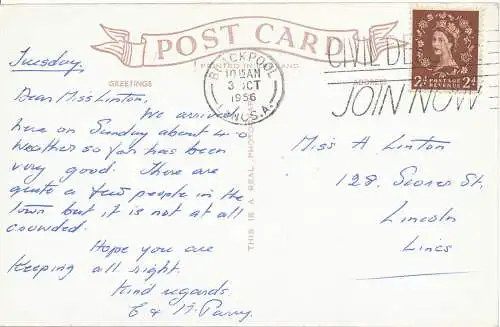 POST CARD
PRINTED IN ENGLAND
GREETINGS
ADDRESS
BLACKPOOL
10 15 AM
3 OCT
1956
LANCS.A.
CIVIL DE
JOIN NOW
2D POSTAGE 2D
REVENUE
Tuesday.
Dear Miss Linton,
We arrived
here on Sunday about 4-0
Weather so far has been
very good. There are
quite a few people in the
town but it is not at all
crowded.
Hope you are
Keeping all right.
Kind regards
E & H. Parry.
THIS IS A REAL PHOTO
Miss A Linton
128,
St.
Lincoln
Lincs